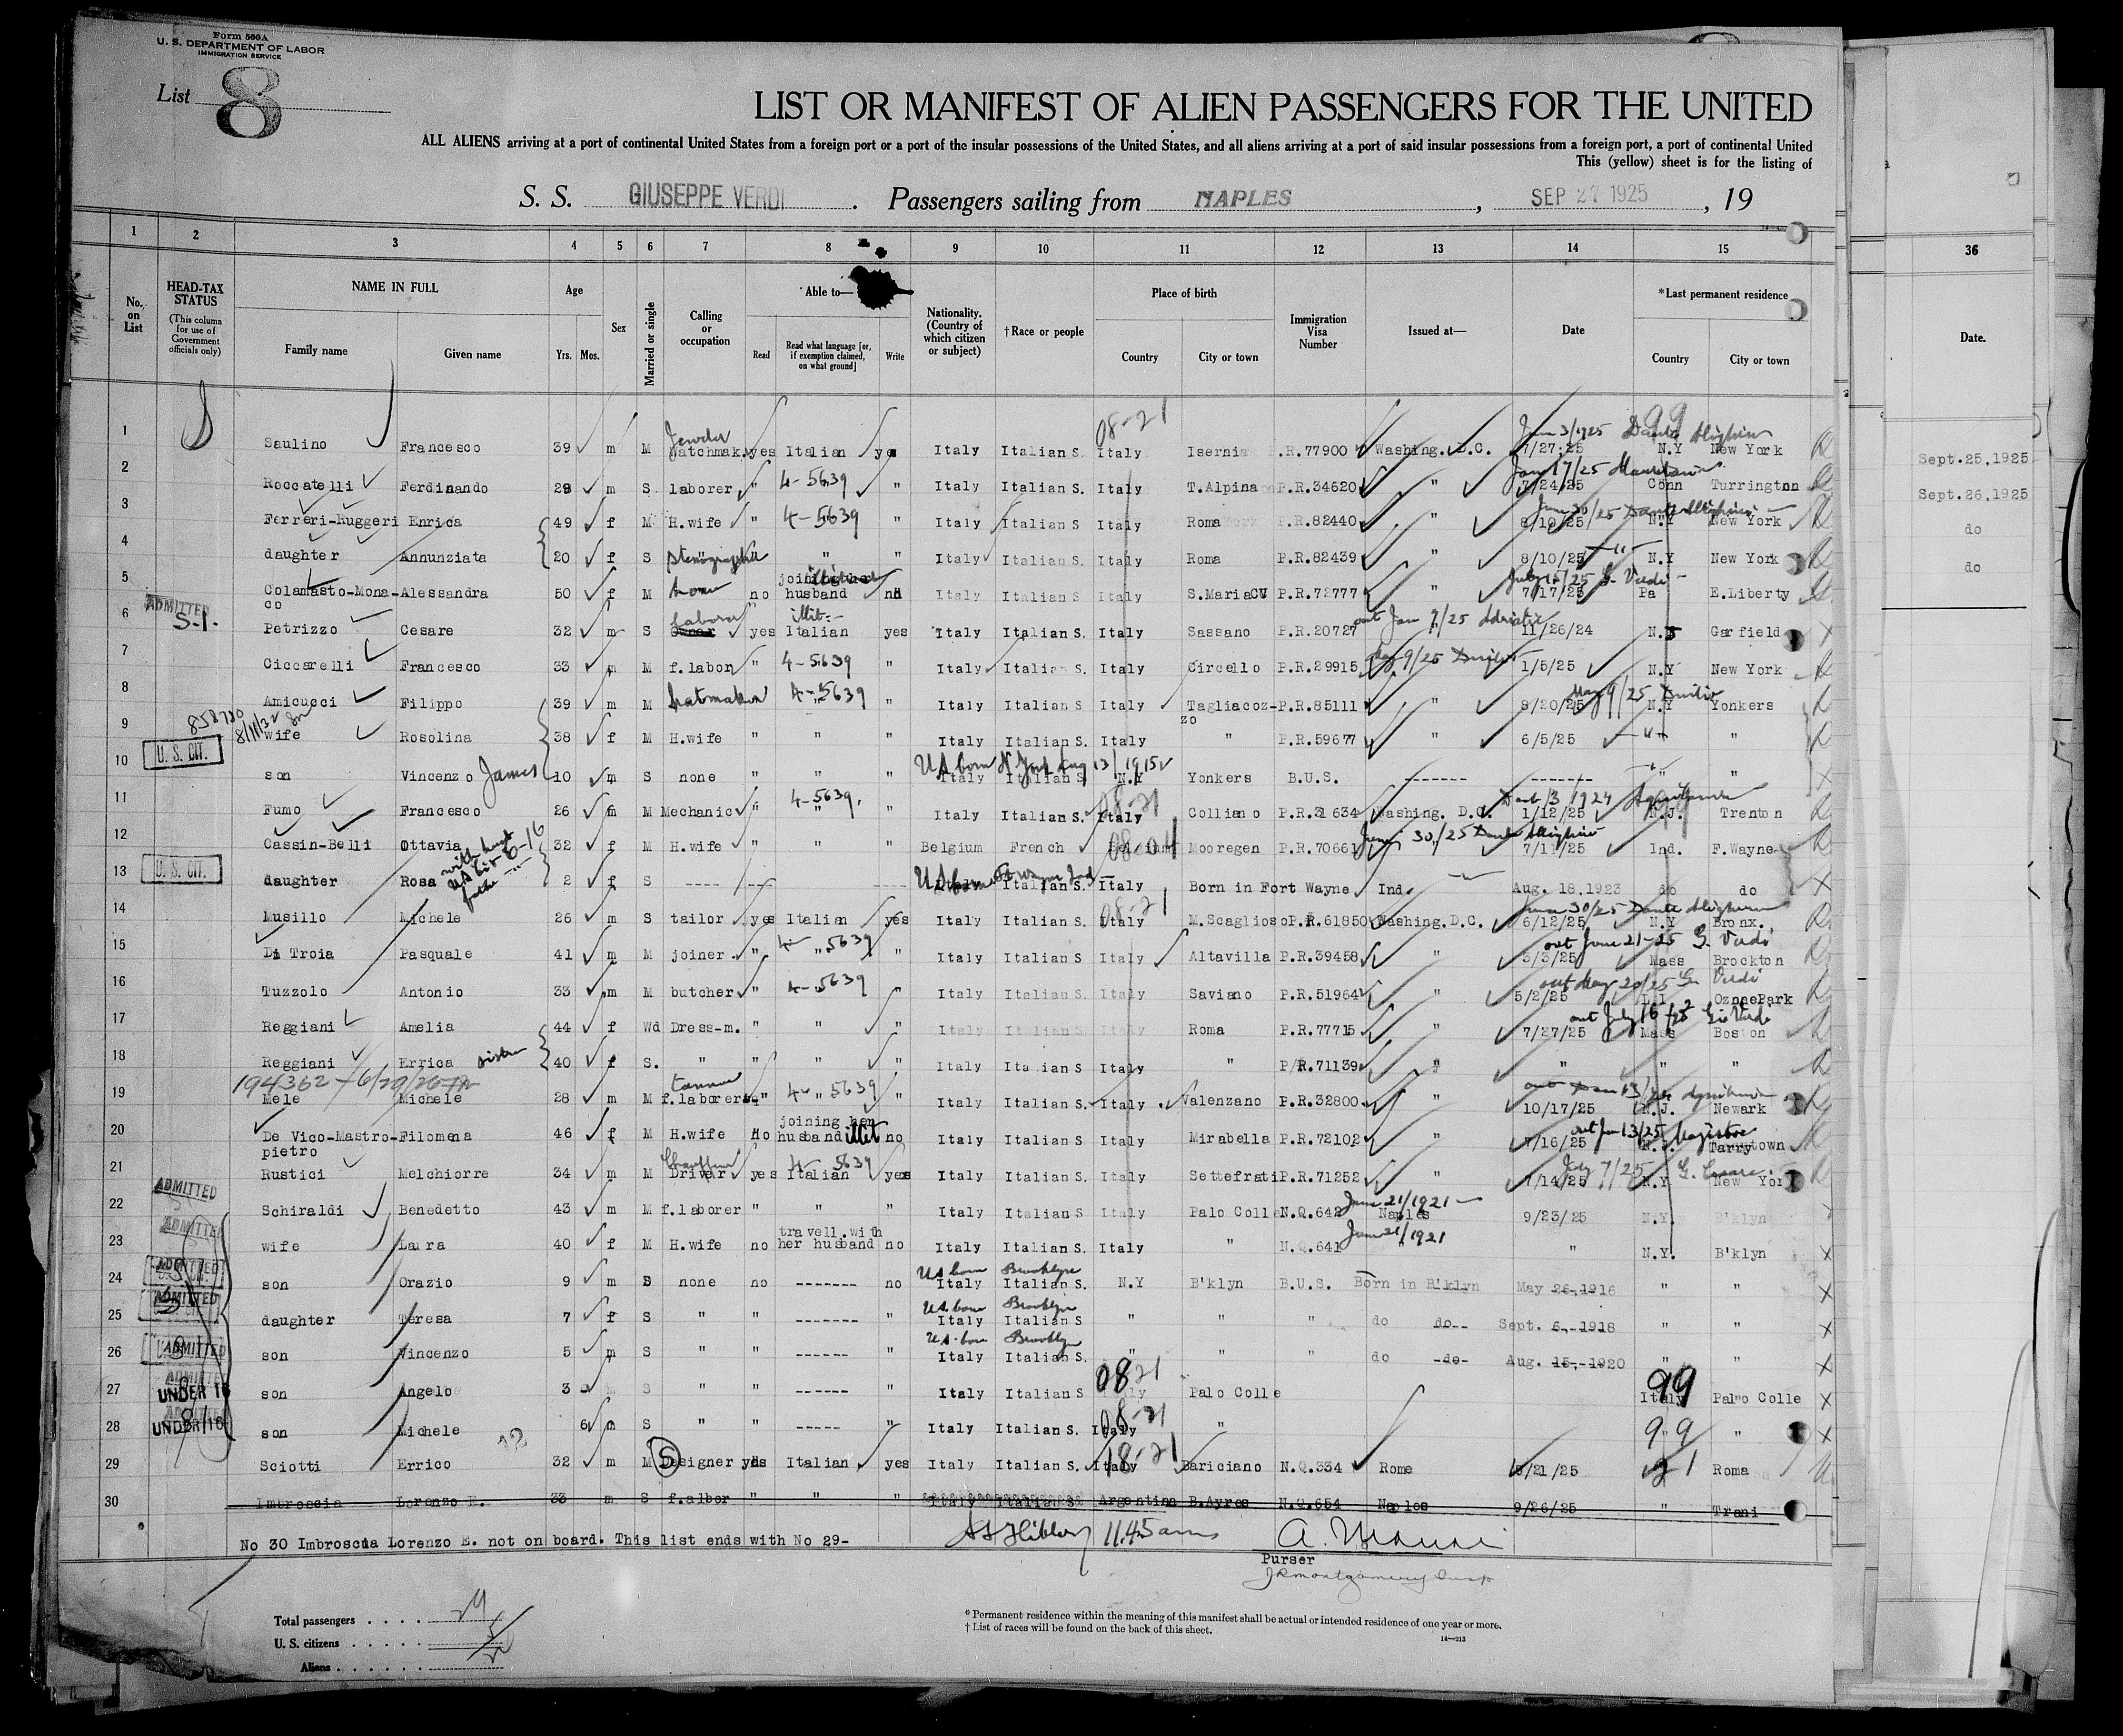 Form 500A
U. S. DEPARTMENT OF LABOR
IMMIGRATION SERVICE
List 8
LIST OR MANIFEST OF ALIEN PASSENGERS FOR THE UNITED
ALL ALIENS arriving at a port of continental United States from a foreign port or a port of the insular possessions of the United States, and all aliens arriving at a port of said insular possessions from a foreign port, a port of continental United
This (yellow) sheet is for the listing of
S. S. GIUSEPPE VERDI . Passengers sailing from NAPLES , SEP 27 1925 , 19
1 2 3 4 5 6 7 8 9 10 11 12 13 14 15 36
No. on List
HEAD-TAX STATUS
(This column for use of Government officials only)
NAME IN FULL
Family name Given name
Age
Yrs. Mos.
Sex
Married or single
Calling or occupation
Able to—
Read
Read what language [or, if exemption claimed, on what ground]
Write
Nationality. (Country of which citizen or subject)
†Race or people
Place of birth
Country City or town
Immigration Visa Number
Issued at—
Date
*Last permanent residence
Country City or town
Date.
08-21 June 3/1925 Dante Alighieri 99
Jeweler
1 Saulino Francesco 39 m M Watchmak. yes Italian yes Italy Italian S. Italy Isernia P.R.77900 Washing. D.C. 7/27/25 N.Y New York Sept.25,1925
2 Roccatelli Ferdinando 29 m S laborer " 4-5639 " Italy Italian S. Italy T.Alpina P.R.34620 " 7/24/25 Conn Turrington Sept.26,1925
June 30/25 Dante Alighieri
3 Ferreri-Ruggeri Enrica 49 f M H.wife " 4-5639 " Italy Italian S. Italy Roma P.R.82440 " 8/10/25 N.Y New York do
4 daughter Annunziata 20 f S Stenographer " " " Italy Italian S. Italy Roma P.R.82439 " 8/10/25 N.Y New York do
July 25 G. Verdi
5 Colamasto-Mona-co Alessandra 50 f M home no joining her husband no Italy Italian S. Italy S.Maria CV P.R.72777 " 7/17/25 Pa E.Liberty
ADMITTED S.I.
laborer illit: out Jan 7/25 Adriatic
6 Petrizzo Cesare 32 m S yes Italian yes Italy Italian S. Italy Sassano P.R.20727 11/26/24 N.J Garfield
7 Ciccarelli Francesco 33 m M f.labor " 4-5639 " Italy Italian S. Italy Circello P.R.29915 1/5/25 N.Y New York
May 9/25 Duilio
8 Amicucci Filippo 39 m M hatmaker " 4-5639 " Italy Italian S. Italy Tagliacoz-zo P.R.85111 " 8/20/25 N.Y Yonkers
858780 8/11/32
9 wife Rosolina 38 f M H.wife " " " Italy Italian S. Italy " P.R.59677 6/5/25 " "
U. S. CIT.
US born N York Aug 13/1915
10 son Vincenzo James 10 m S none " " " Italy Italian S. N.Y Yonkers B.U.S. ------- ------- " "
08-21 Dec 3 1924
11 Fumo Francesco 26 m M Mechanic " 4-5639 " Italy Italian S. Italy Colliano P.R.31634 Washing. D.C. 1/12/25 N.J. Trenton
June 30/25 Dante Alighieri
12 Cassin-Belli Ottavia 32 f M H.wife " " " Belgium French 08-04 Mooregen P.R.70661 7/11/25 Ind. F.Wayne
U. S. CIT.
US born Ft Wayne Ind
13 daughter Rosa 2 f S ---- --- ---- Italian S. Italy Born in Fort Wayne Ind. Aug. 18,1923 do do
08-21 June 30/25 Dante Alighieri
14 Lusillo Michele 26 m S tailor yes Italian yes Italy Italian S. Italy M.Scaglioso P.R.61850 Washing.D.C. 6/12/25 N.Y Bronx.
out June 21-25 G. Verdi
15 Di Troia Pasquale 41 m M joiner " 4-5639 " Italy Italian S Italy Altavilla P.R.39458 " 3/3/25 Mass Brockton
out May 20/25 G. Verdi
16 Tuzzolo Antonio 33 m M butcher " 4-5639 " Italy Italian S. Italy Saviano P.R.51964 " 5/2/25 L.I OznnePark
out July 16-25 Giu Verdi
17 Reggiani Amelia 44 f Wd Dress-m. " " " Italy Italian S Italy Roma P.R.77715 " 7/27/25 Mass Boston
18 Reggiani Errica sister 40 f S. " " " " Italy Italian S. Italy " P/R.71139 " " " "
194362
tanner
19 Mele Michele 28 m M f.laborer " 4-5639 " Italy Italian S. Italy Valenzano P.R.32800 " 10/17/25 N.J. Newark
20 De Vico-Mastro-pietro Filomena 46 f M H.wife no joining her husband illit no Italy Italian S. Italy Mirabella P.R.72102 " 7/16/25 Tarrytown
Chauffeur July 7/25 G. Cesare
21 Rustici Melchiorre 34 m M Driver yes 4-5639 Italian yes Italy Italian S. Italy Settefrati P.R.71252 " 7/14/25 N.Y. New York
ADMITTED
June 21/1921
22 Schiraldi Benedetto 43 m M f.laborer " " " Italy Italian S. Italy Palo Colle N.Q.642 Naples 9/23/25 N.Y. B'klyn
ADMITTED
June 21/1921
23 wife Laura 40 f M H.wife no travell.with her husband no Italy Italian S. Italy " N.Q.641 " " N.Y. B'klyn
ADMITTED
US born Brooklyn
24 son Orazio 9 m S none no ------- no Italy Italian S. N.Y B'klyn B.U.S. Born in B'klyn May 26,1916 " "
ADMITTED
US born Brooklyn
25 daughter Teresa 7 f S " " ------- " Italy Italian S " " " do do-- Sept. 6,-1918 " "
ADMITTED
US born Brooklyn
26 son Vincenzo 5 m S " " ------ " Italy Italian S. " " " do -do- Aug. 15,-1920 " "
ADMITTED UNDER 16
27 son Angelo 3 m S " " ------ " Italy Italian S 0821 Italy Palo Colle 99 Italy Palo Colle
ADMITTED UNDER 16
28 son Michele 6 m S " " ----- " Italy Italian S. 08-21 Italy " 99 " "
29 Sciotti Errico 32 m M Designer yes Italian yes Italy Italian S. Italy Bariciano N.Q.334 Rome 8/21/25 21 Roma
30 Imbroscia Lorenzo E. 33 m S f.albor " " " Italy Italian S Argentina B.Ayres N.Q.654 Naples 9/26/25 " Trani
No 30 Imbroscia Lorenzo E. not on board. This list ends with No 29-
11.45 am
Purser
JRMontgomery Insp
Total passengers . . . . 29
U. S. citizens . . . . . 5
Aliens . . . . . .
* Permanent residence within the meaning of this manifest shall be actual or intended residence of one year or more.
† List of races will be found on the back of this sheet.
14—213